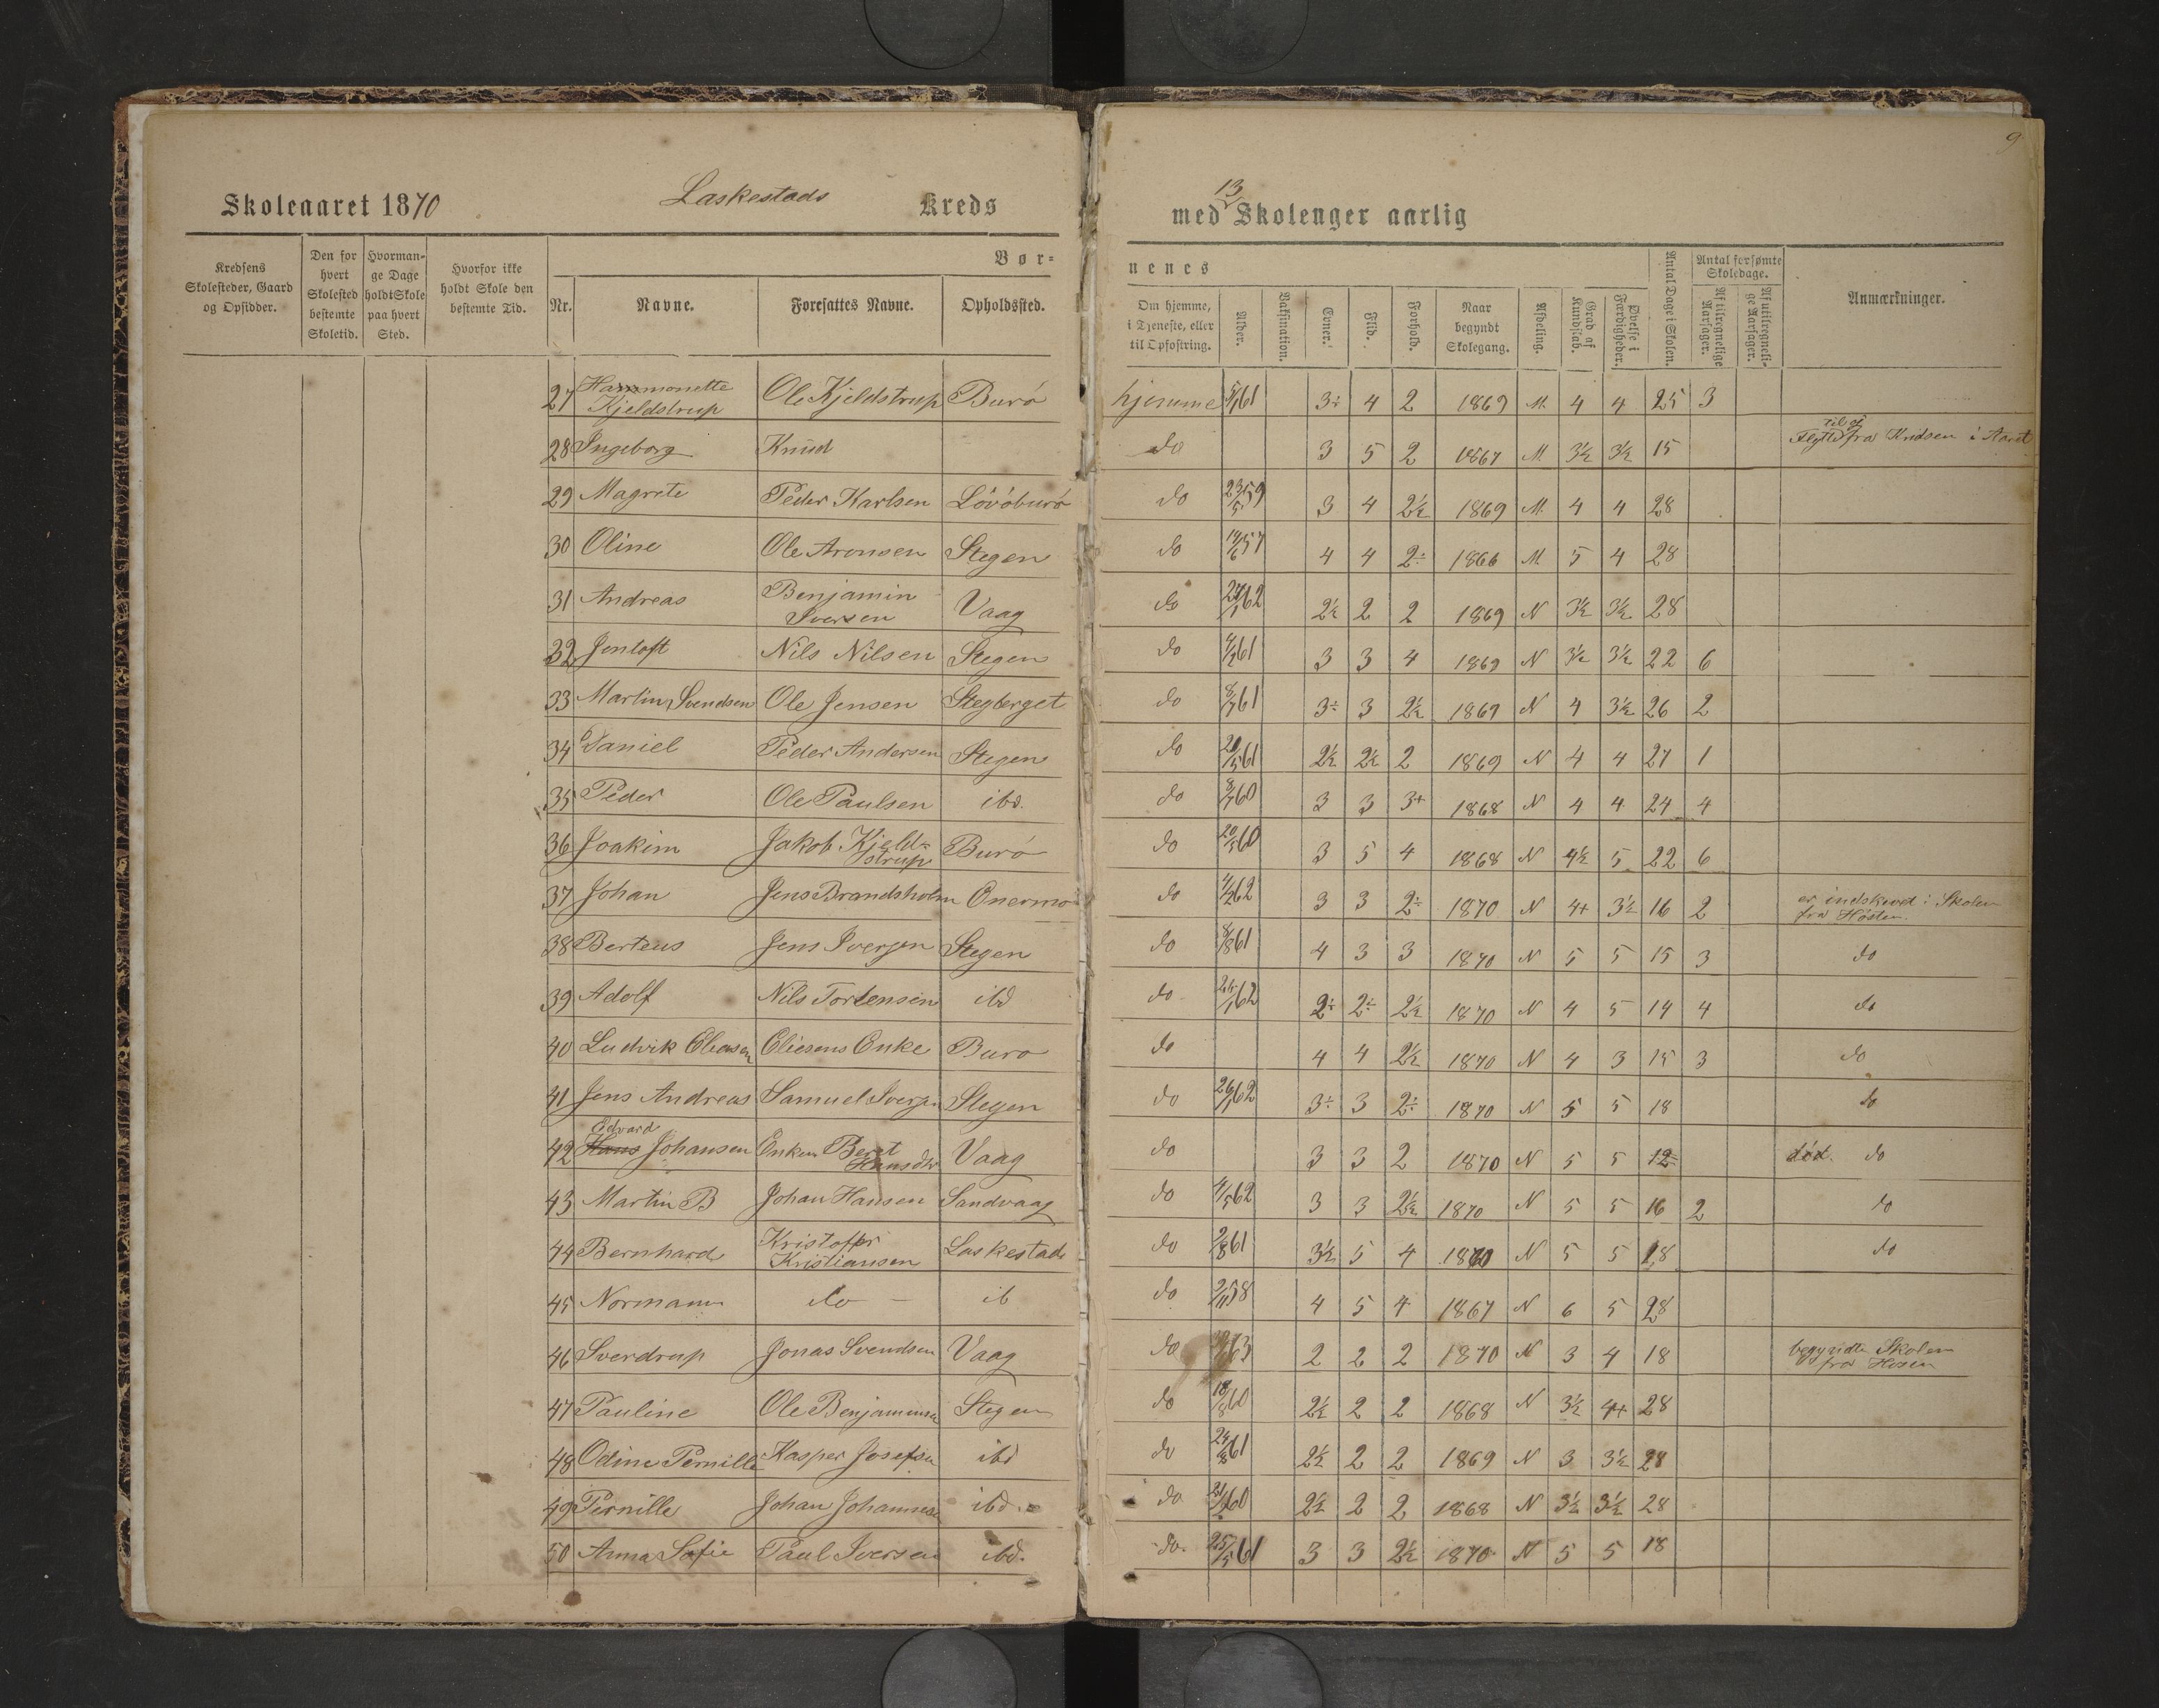 9
Skoleaaret 1870 Laskestads Kreds
med 13 Skolenger aarlig
Kredsens Skolesteder, Gaard og Opsidder.
Den for hvert Skolested bestemte Skoletid.
Hvormange Dage holdt Skole paa hvert Sted.
Hvorfor ikke holdt Skole den bestemte Tid.
Bør=
nenes
Nr. Navne. Foresattes Navne. Opholdssted.
Om hjemme, i Tjeneste, eller til Opfostring.
Alder. Vaksination. Evner. Flid. Forhold. Naar begyndt Skolegang. Afdeling. Grad af Kundskab. Øvelse i Færdigheder. Antal Dage i Skolen. Antal forsømte Skoledage. Af tilregnelige Aarsager. Af utilregnelige Aarsager. Anmærkninger.
27 Hammonette Kjeldstrup Ole Kjeldstrup Burø hjemme 5/1 61 3÷ 4 2 1869 M. 4 4 25 3
28 Ingeborg Knud do 3 5 2 1867 M. 3½ 3½ 15 Flytte til og fra Kridsen i Aaret
29 Magrete Peder Karlsen Løvøburø do 23/5 59 3 4 2½ 1869 M. 4 4 28
30 Oline Ole Aronsen Stegen do 19/6 57 4 4 2÷ 1866 M 5 4 28
31 Andreas Benjamin Iversen Vaag do 24/1 62 2½ 2 2 1869 N 3½ 3½ 28
32 Jentoft Nils Nilsen Stegen do 4/2 61 3 3 4 1869 N 3½ 3½ 22 6
33 Martin Svendsen Ole Jensen Stegberget do 8/7 61 3÷ 3 2½ 1869 N 4 3½ 26 2
34 Daniel Peder Andersen Stegen do 20/5 61 2½ 2½ 2 1869 N 4 4 27 1
35 Peder Ole Paulsen ibd. do 8/7 60 3 3 3+ 1868 N 4 4 24 4
36 Joakim Jakob Kjeld=strup Burø do 20/5 60 3 5 4 1868 N 4½ 5 22 6
37 Johan Jens Brandsholm Onermo do 4/2 62 3 3 2÷ 1870 N 4+ 3½ 16 2 er indskrevet i Skolen fra Høsten.
38 Berteus Jens Iversen Stegen do 8/8 61 4 3 3 1870 N 5 5 15 3 do
39 Adolf Nils Torstensen ibd do 26/1 62 2÷ 2÷ 2½ 1870 N 4 5 14 4 do
40 Ludvik Eliesen Eliesens Enke Burø do 4 4 2½ 1870 N 4 3 15 3 do
41 Jens Andreas Samuel Iversen Stegen do 26/1 62 3÷ 3 2÷ 1870 N 5 5 18 do
42 Hans Edvard Johansen Enken Beret Hansdtr Vaag do 3 3 2 1870 N 5 5 12 død. do
43 Martin B Johan Hansen Sandvaag do 4/5 62 3 3 2½ 1870 N 5 5 16 2 do
44 Bernhard Kristoffer Kristiansen Laskestad do 2/8 61 3½ 5 4 1870 N 5 5 18 do
45 Normann do — ib do 2/11 58 4 5 4 1867 N 6 5 28
46 Sverdrup Jonas Svendsen Vaag do 63 2 2 2 1870 N 3 4 18 begyndte Skolen fra Høsten
47 Pauline Ole Benjaminsen Stegen do 18/8 60 2½ 2 2 1868 N 3½ 4+ 28
48 Odine Pernille Kasper Josefsen ibd do 24/8 61 2½ 2 2 1869 N 3 3½ 28
49 Pernille Johan Johannesen ibd. do 60 2½ 2 2 1868 N 3½ 3½ 28
50 Anna Sofie Paul Iversen ibd. do. 25/5 61 3 3 2½ 1870 N 5 5 18